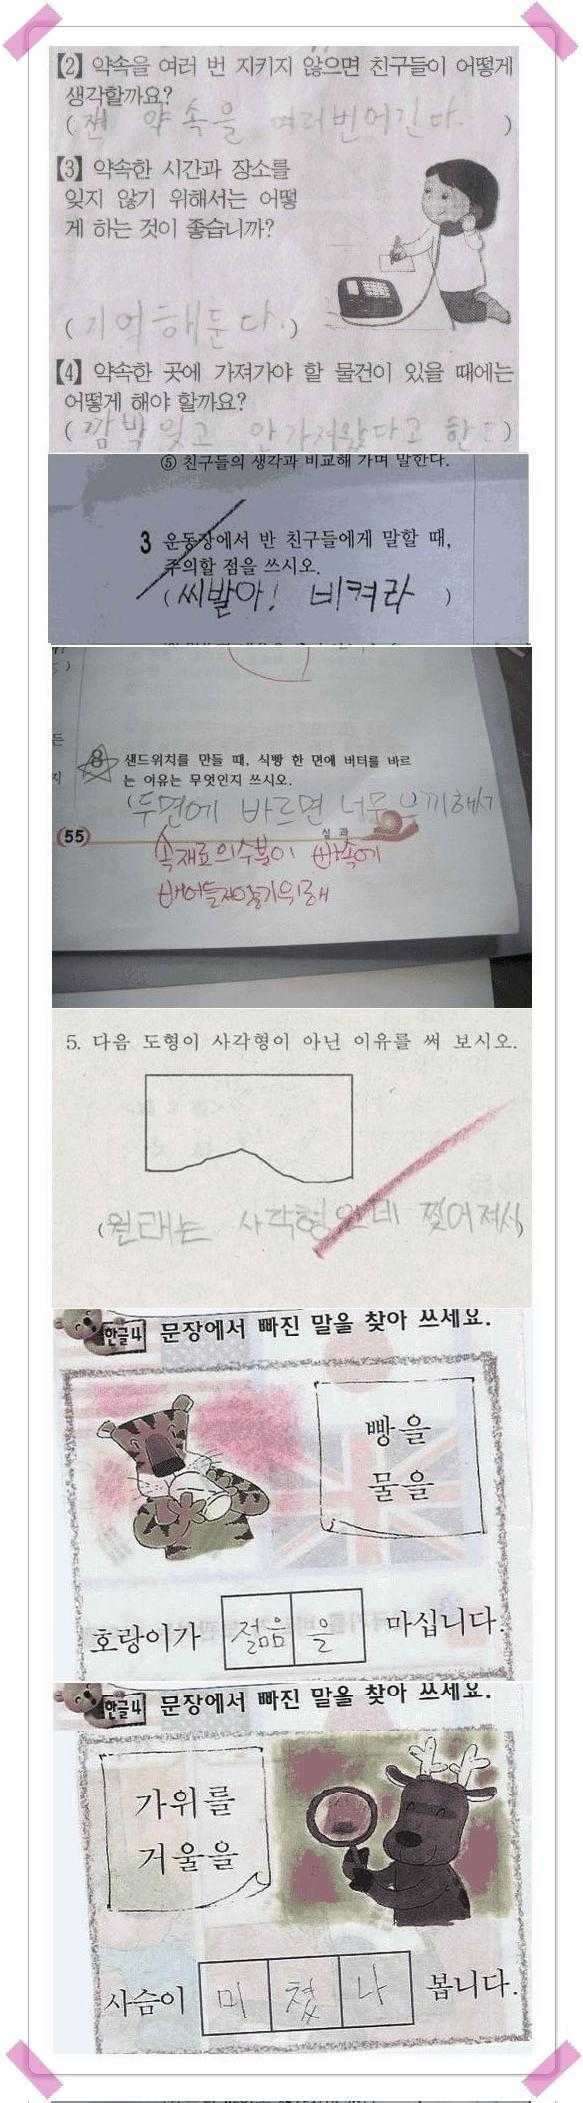 【2】 약속을 여러 번 지키지 않으면 친구들이 어떻게
생각할까요?
(쟨 약속을 여러번어긴다. )
【3】 약속한 시간과 장소를
잊지 않기 위해서는 어떻
게 하는 것이 좋습니까?
(기억해둔다.)
【4】 약속한 곳에 가져가야 할 물건이 있을 때에는
어떻게 해야 할까요?
(깜박 잊고 안가저왔다고 한다)
⑤ 친구들의 생각과 비교해 가며 말한다.
3 운동장에서 반 친구들에게 말할 때,
주의할 점을 쓰시오.
(씨발아! 비켜라 )
8 샌드위치를 만들 때, 식빵 한 면에 버터를 바르
는 이유는 무엇인지 쓰시오.
(두면에 바르면 너무 느끼해서
55 실과
속재료의수분이 빵속에
배어들지않기위해
5. 다음 도형이 사각형이 아닌 이유를 써 보시오.
(원래는 사각형인데 찢어져서)
한글4 문장에서 빠진 말을 찾아 쓰세요.
빵을
물을
호랑이가 젊음 을 마십니다.
한글4 문장에서 빠진 말을 찾아 쓰세요.
가위를
거울을
사슴이 미 쳤 나 봅니다.